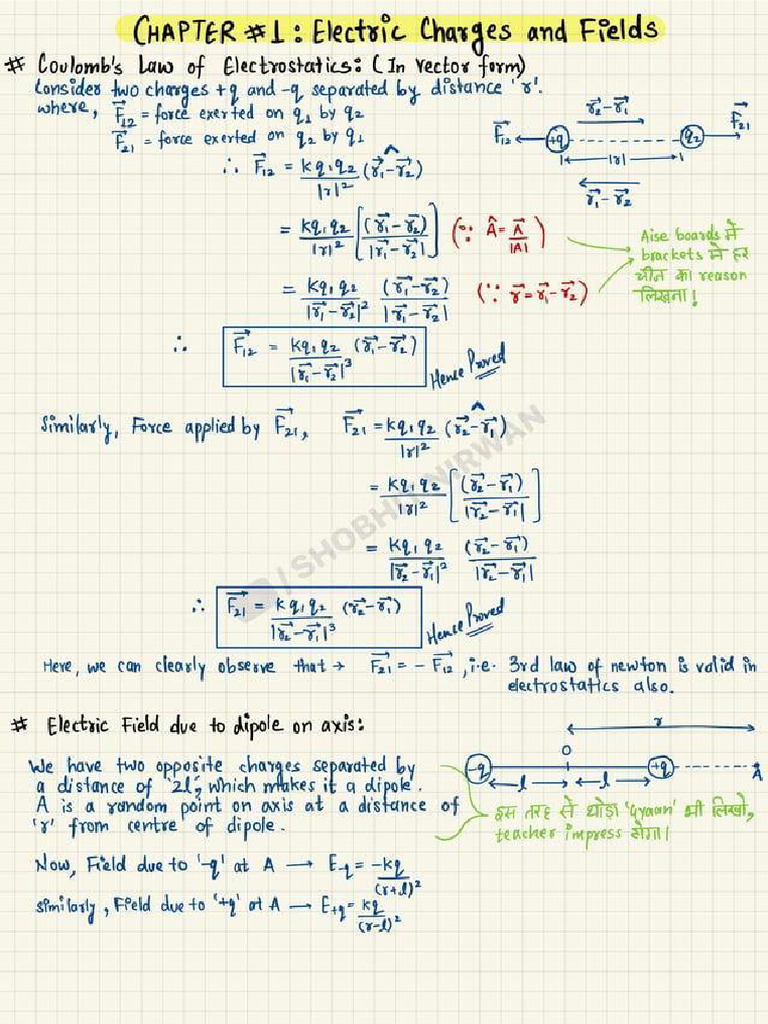 CHAPTER #1: Electric Charges and Fields
# Coulomb's Law of Electrostatics: (In vector form)
Consider two charges +q and -q separated by distance 'r'.
where, F⃗₁₂ = force exerted on q₁ by q₂
F⃗₂₁ = force exerted on q₂ by q₁
r⃗₂-r⃗₁
F⃗₁₂ +q q₂ F⃗₂₁
|r|
r⃗₁-r⃗₂
∴ F⃗₁₂ = kq₁q₂/|r|² (r⃗₁-r⃗₂)^
= kq₁q₂/|r|² [(r⃗₁-r⃗₂)/|r⃗₁-r⃗₂|] (∵ Â = A⃗/|A|)
= kq₁q₂/|r⃗₁-r⃗₂|² (r⃗₁-r⃗₂)/|r⃗₁-r⃗₂| (∵ r⃗ = r⃗₁-r⃗₂)
Aise boards में
brackets में हर
चीज का reason
लिखना!
∴ F⃗₁₂ = kq₁q₂/|r⃗₁-r⃗₂|³ (r⃗₁-r⃗₂)
Hence Proved
Similarly, Force applied by F⃗₂₁, F⃗₂₁ = kq₁q₂/|r|² (r⃗₂-r⃗₁)^
= kq₁q₂/|r|² [(r⃗₂-r⃗₁)/|r⃗₂-r⃗₁|]
= kq₁q₂/|r⃗₂-r⃗₁|² (r⃗₂-r⃗₁)/|r⃗₂-r⃗₁|
∴ F⃗₂₁ = kq₁q₂/|r⃗₂-r⃗₁|³ (r⃗₂-r⃗₁)
Hence Proved
/ SHOBHIT NIRWAN
Here, we can clearly observe that → F⃗₂₁ = -F⃗₁₂, i.e. 3rd law of newton is valid in
electrostatics also.
# Electric Field due to dipole on axis:
r
O
-q +q A
l l
We have two opposite charges separated by
a distance of '2l', which makes it a dipole.
A is a random point on axis at a distance of
'r' from centre of dipole.
इस तरह से थोड़ा 'Gyaan' भी लिखो,
teacher impress होगा।
Now, Field due to '-q' at A → E-q = -kq/(r+l)²
similarly, Field due to '+q' at A → E+q = kq/(r-l)²